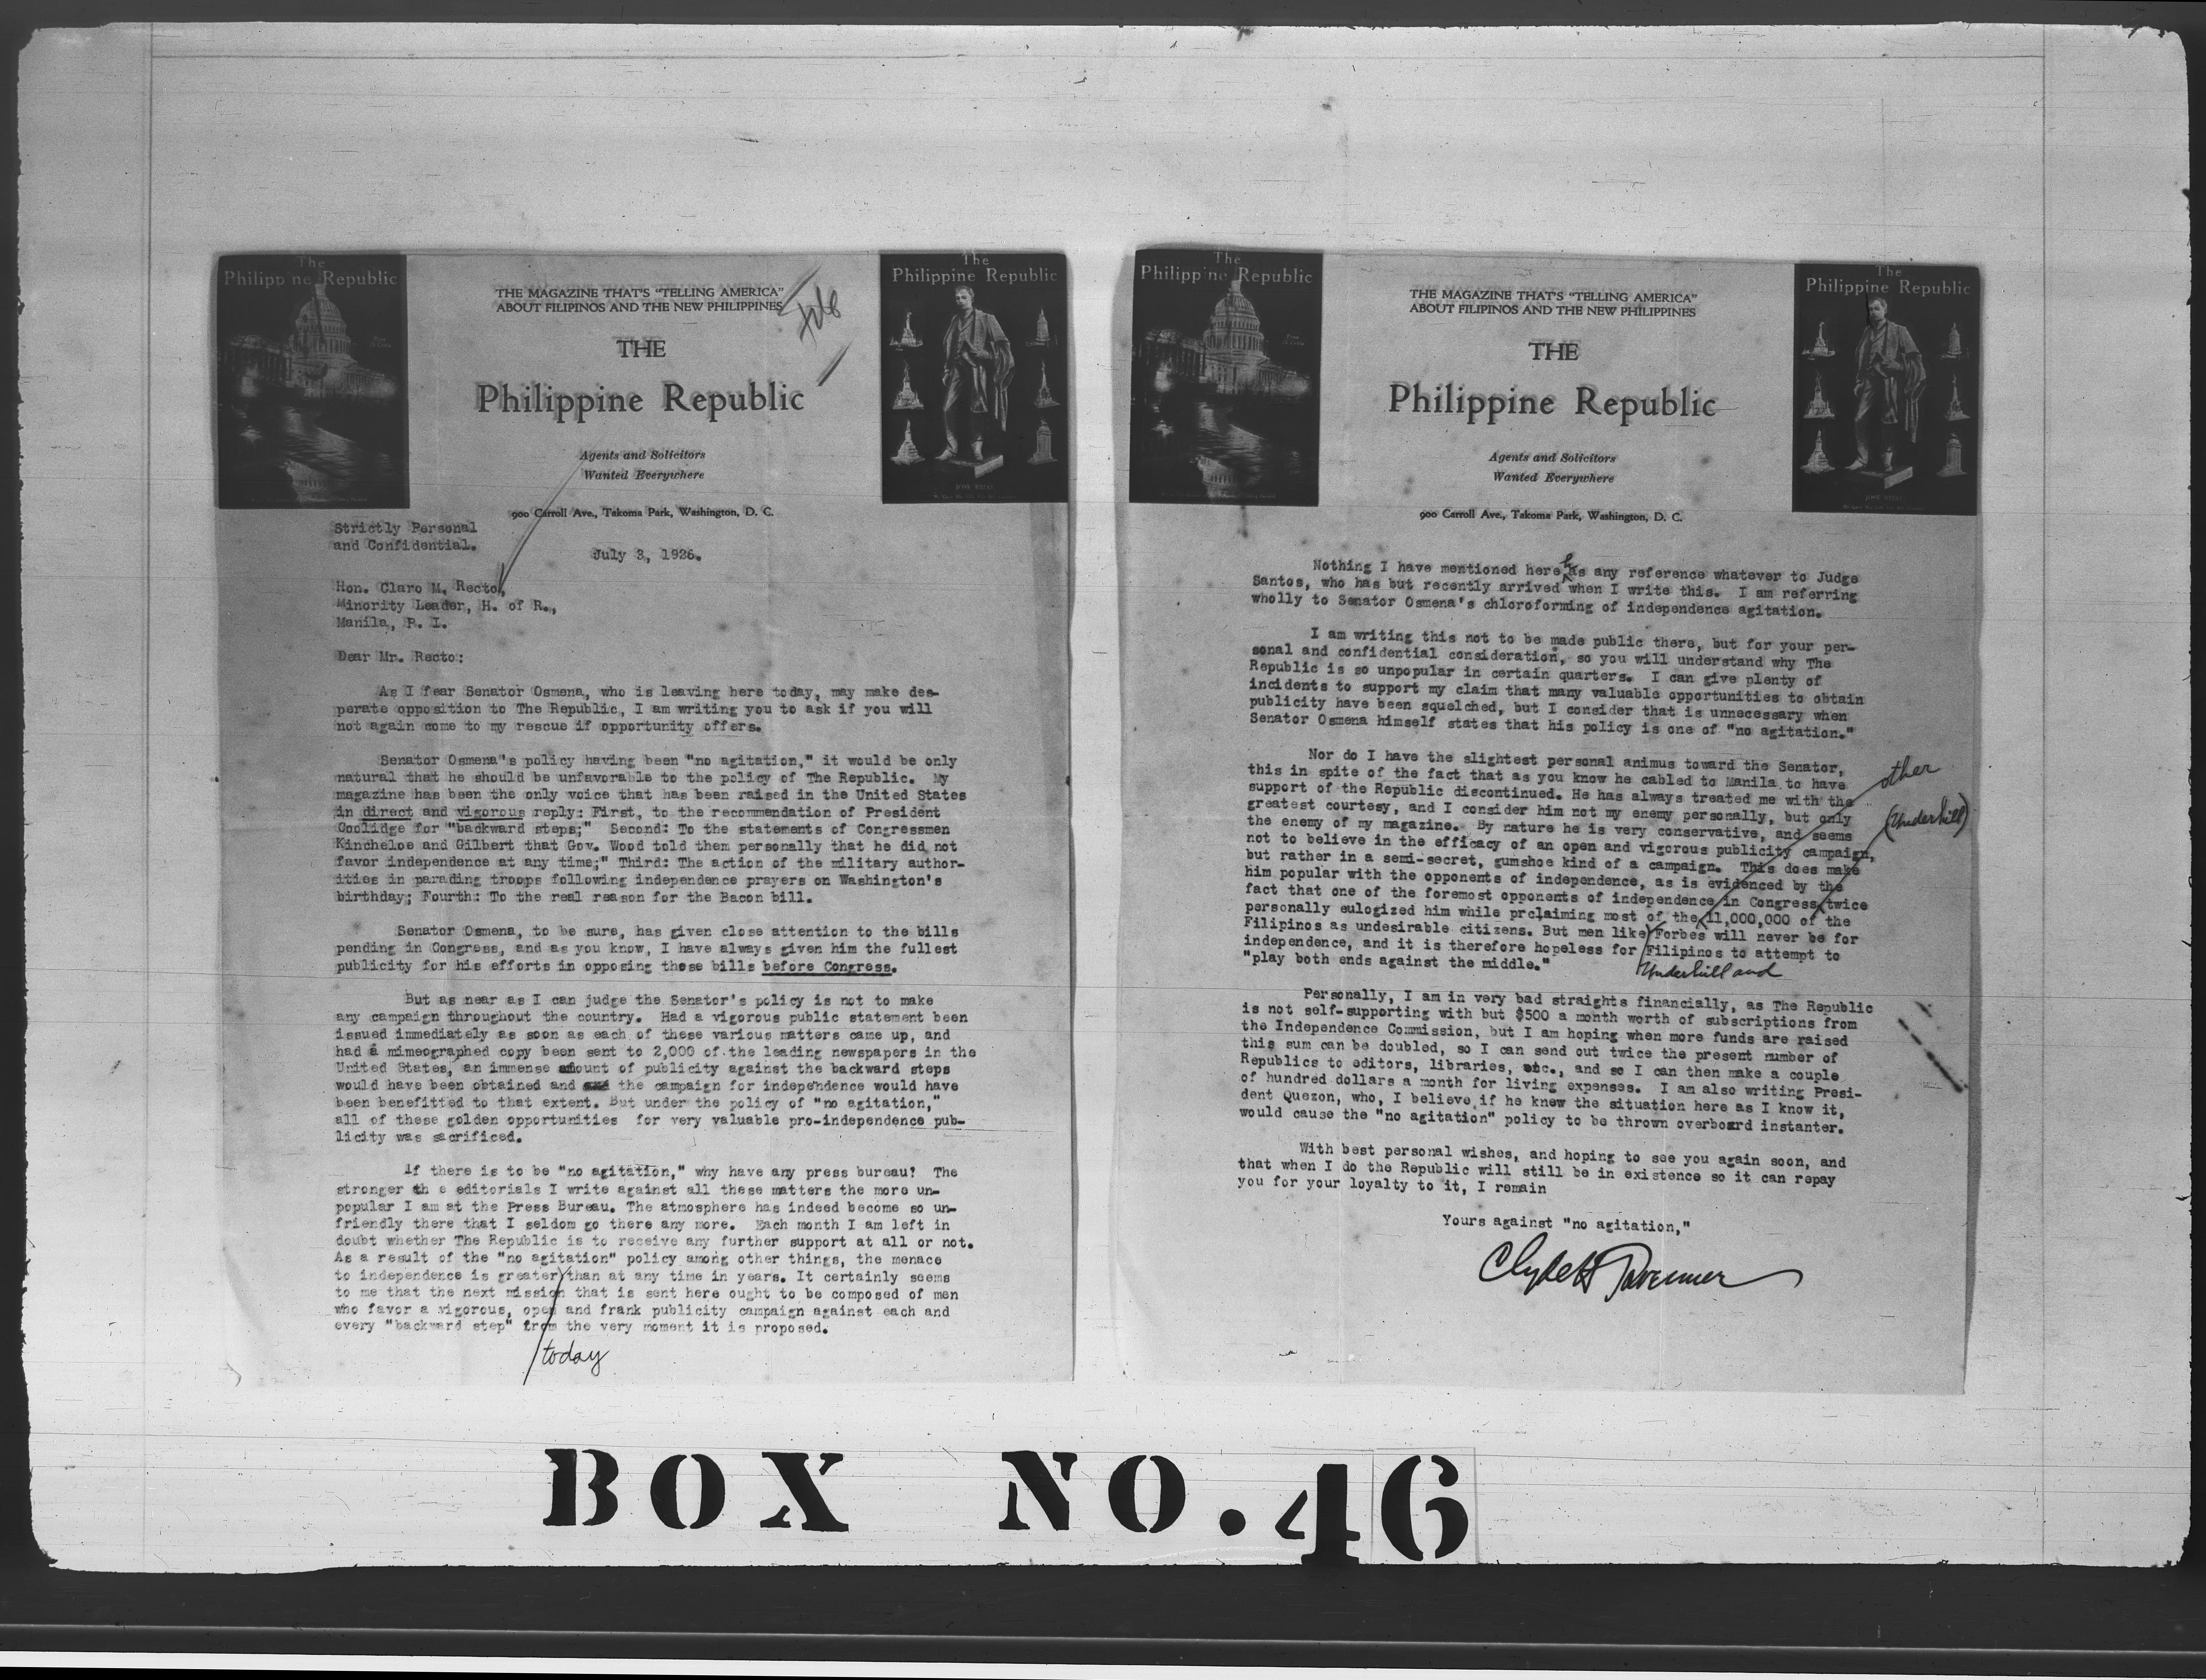 The
Philippine Republic
THE MAGAZINE THAT'S "TELLING AMERICA"
ABOUT FILIPINOS AND THE NEW PHILIPPINES
File
THE
Philippine Republic
Agents and Solicitors
Wanted Everywhere
900 Carroll Ave., Takoma Park, Washington, D. C.
The
Philippine Republic
JOSE RIZAL
Strictly Personal
and Confidential.
July 3, 1926.
Hon. Claro M. Recto,
Minority Leader, H. of R.,
Manila, P. I.
Dear Mr. Recto:
As I fear Senator Osmena, who is leaving here today, may make des-
perate opposition to The Republic, I am writing you to ask if you will
not again come to my rescue if opportunity offers.
Senator Osmena"s policy having been "no agitation," it would be only
natural that he should be unfavorable to the policy of The Republic. My
magazine has been the only voice that has been raised in the United States
in direct and vigorous reply: First, to the recommendation of President
Coolidge for "backward steps;" Second: To the statements of Congressmen
Kincheloe and Gilbert that Gov. Wood told them personally that he did not
favor independence at any time;" Third: The action of the military author-
ities in parading troops following independence prayers on Washington's
birthday; Fourth: To the real reason for the Bacon bill.
Senator Osmena, to be sure, has given close attention to the bills
pending in Congress, and as you know, I have always given him the fullest
publicity for his efforts in opposing these bills before Congress.
But as near as I can judge the Senator's policy is not to make
any campaign throughout the country. Had a vigorous public statement been
issued immediately as soon as each of these various matters came up, and
had a mimeographed copy been sent to 2,000 of the leading newspapers in the
United States, an immense amount of publicity against the backward steps
would have been obtained and the campaign for independence would have
been benefitted to that extent. But under the policy of "no agitation,"
all of these golden opportunities for very valuable pro-independence pub-
licity was sacrificed.
If there is to be "no agitation," why have any press bureau? The
stronger th e editorials I write against all these matters the more un-
popular I am at the Press Bureau. The atmosphere has indeed become so un-
friendly there that I seldom go there any more. Each month I am left in
doubt whether The Republic is to receive any further support at all or not.
As a result of the "no agitation" policy among other things, the menace
to independence is greater than at any time in years. It certainly seems
to me that the next mission that is sent here ought to be composed of men
who favor a vigorous, open and frank publicity campaign against each and
every "backward step" from the very moment it is proposed.
today
The
Philippine Republic
THE MAGAZINE THAT'S "TELLING AMERICA"
ABOUT FILIPINOS AND THE NEW PHILIPPINES
THE
Philippine Republic
Agents and Solicitors
Wanted Everywhere
900 Carroll Ave., Takoma Park, Washington, D. C.
The
Philippine Republic
JOSE RIZAL
Nothing I have mentioned here has any reference whatever to Judge
Santos, who has but recently arrived when I write this. I am referring
wholly to Senator Osmena's chloroforming of independence agitation.
I am writing this not to be made public there, but for your per-
sonal and confidential consideration, so you will understand why The
Republic is so unpopular in certain quarters. I can give plenty of
incidents to support my claim that many valuable opportunities to obtain
publicity have been squelched, but I consider that is unnecessary when
Senator Osmena himself states that his policy is one of "no agitation."
Nor do I have the slightest personal animus toward the Senator,
this in spite of the fact that as you know he cabled to Manila to have
support of the Republic discontinued. He has always treated me with the
greatest courtesy, and I consider him not my enemy personally, but only
the enemy of my magazine. By nature he is very conservative, and seems
not to believe in the efficacy of an open and vigorous publicity campaign,
but rather in a semi-secret, gumshoe kind of a campaign. This does make
him popular with the opponents of independence, as is evidenced by the
fact that one of the foremost opponents of independence in Congress twice
personally eulogized him while proclaiming most of the 11,000,000 of the
Filipinos as undesirable citizens. But men like Forbes will never be for
independence, and it is therefore hopeless for Filipinos to attempt to
"play both ends against the middle."
other
(Underhill)
Underhill and
Personally, I am in very bad straights financially, as The Republic
is not self-supporting with but $500 a month worth of subscriptions from
the Independence Commission, but I am hoping when more funds are raised
this sum can be doubled, so I can send out twice the present number of
Republics to editors, libraries, etc., and so I can then make a couple
of hundred dollars a month for living expenses. I am also writing Presi-
dent Quezon, who, I believe if he knew the situation here as I know it,
would cause the "no agitation" policy to be thrown overboard instanter.
With best personal wishes, and hoping to see you again soon, and
that when I do the Republic will still be in existence so it can repay
you for your loyalty to it, I remain
Yours against "no agitation,"
Clyde H Tavenner
BOX NO. 46